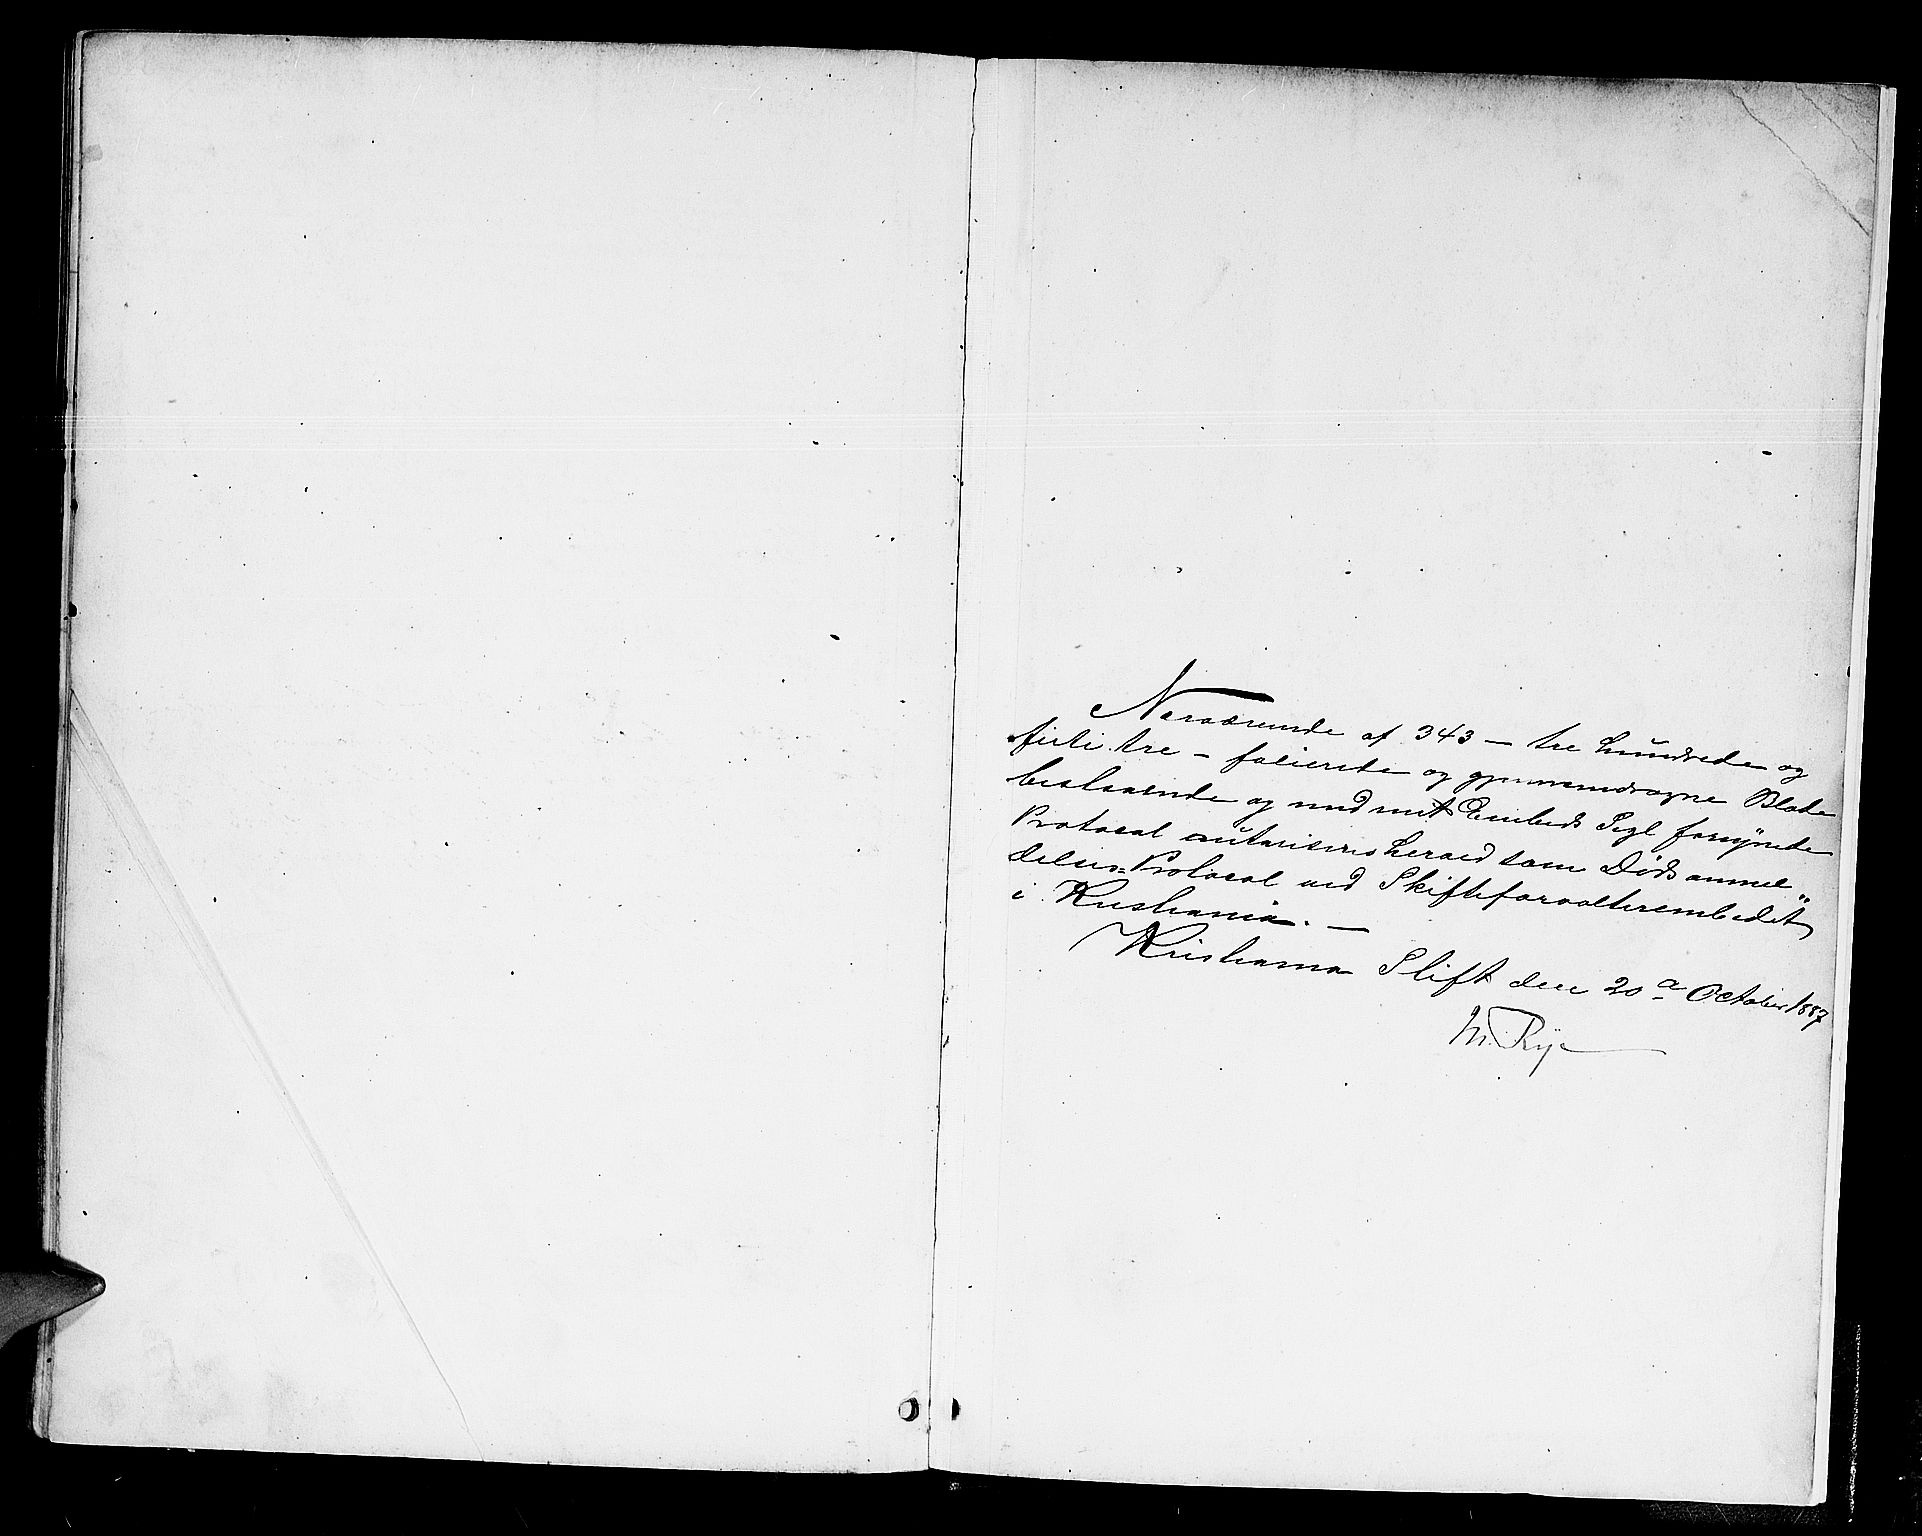 Nærværende af 343 – tre hundrede og
firti tre – folierede og gjennemdragne Blade
bestaaende og med mit Embeds Segl forsynede
Protocol autoriseres herved som Dødsanmel"
delses=Protocol ved Skifteforvalterembedet
i Kristiania. –
Kristiania Skift den 20de October 1887
M. Rye